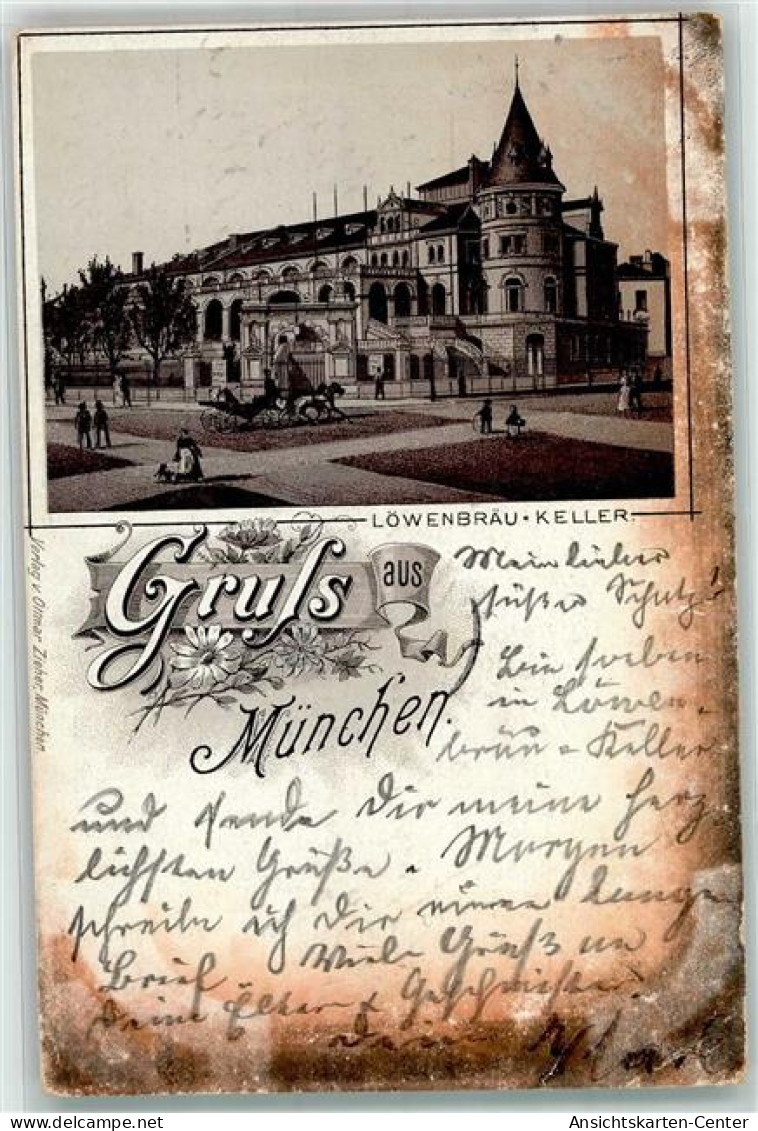 LÖWENBRÄU • KELLER.
Gruss aus
München.
Verlag v. Ottmar Zieher, München
Mein lieber
süßer Schatz!
Bin soeben
in Löwen-
bräu-Keller
und sende Dir meine herz-
lichsten Grüße. Morgen
schreibe ich Dir einen langen
Brief Viele Grüße an
Deine Eltern & Geschwister.
Dein
Ansichtskarten-Center